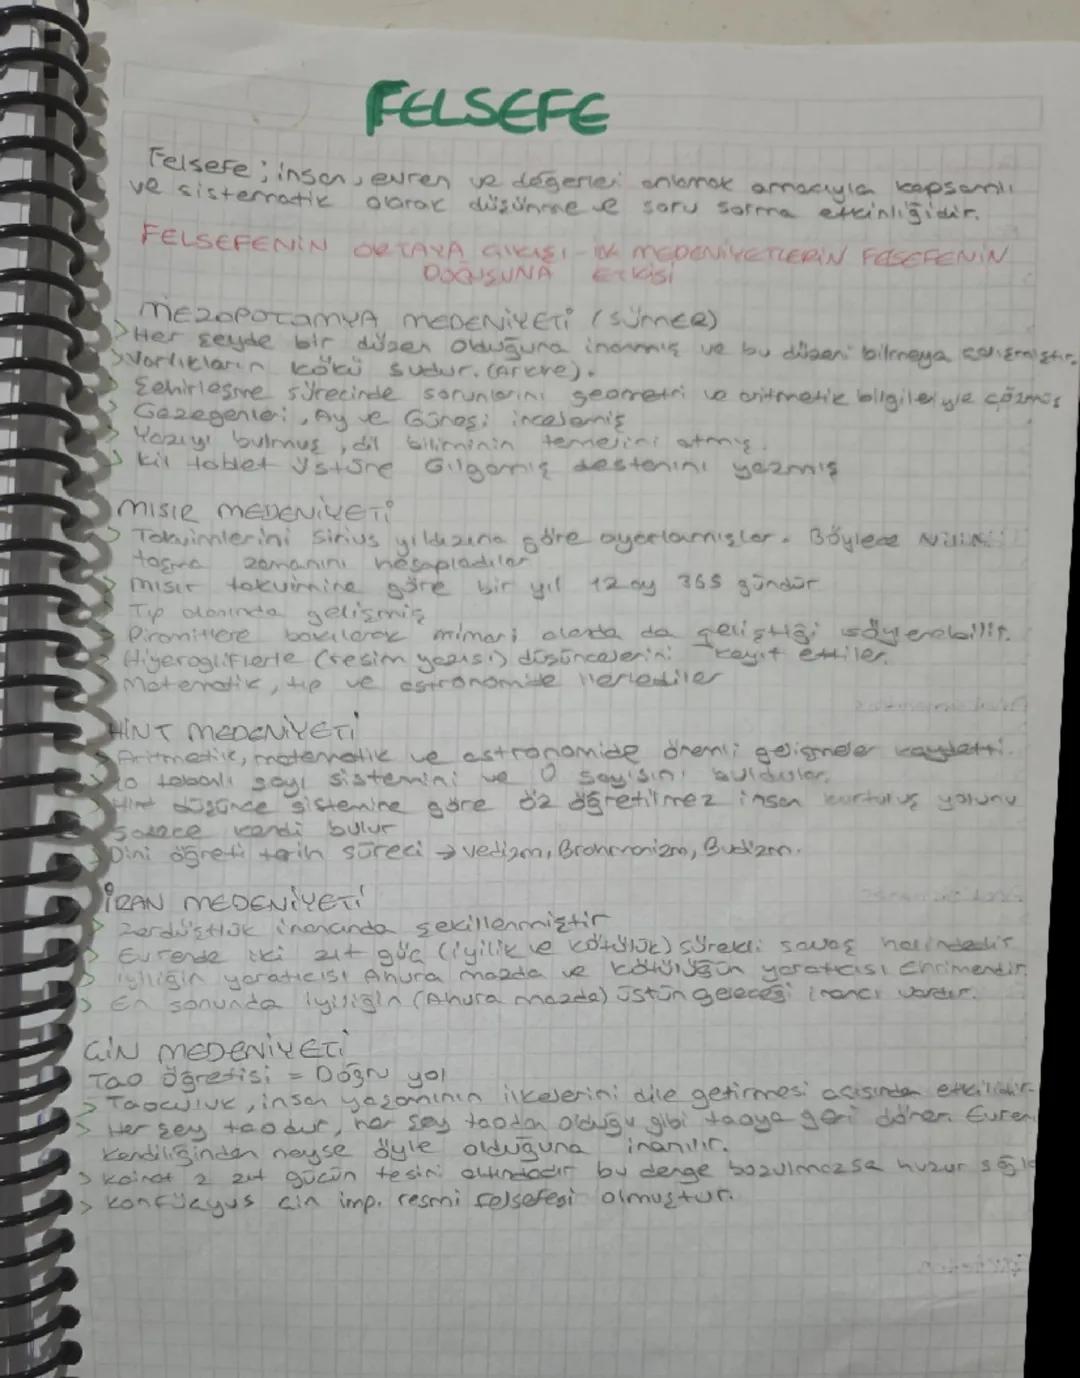 FELSEFE
Felsefe; insan, evren ve değerleri anlamak amacıyla kapsamlı
ve sistematik olarak düşünme ve soru sorma etkinliğidir.
FELSEFENİN ORTAYA ÇIKIŞI - İLK MEDENİYETLERİN FELSEFENİN
DOĞUŞUNA ETKİSİ
MEZOPOTAMYA MEDENİYETİ (SÜMER)
> Her şeyde bir düzen olduğuna inanmış ve bu düzeni bilmeya çalışmıştır.
> Varlıkların kökü sudur. (Arkhe).
> Şehirleşme sürecinde sorunlarını geometri ve aritmetik bilgileriyle çözmüş
> Gezegenleri, Ay ve Güneşi incelemiş
> Yazıyı bulmuş, dil biliminin temelini atmış.
> Kil tablet üstüne Gılgamış destanını yazmış
MISIR MEDENİYETİ
> Takvimlerini Sirius yıldızına göre ayarlamışlar. Böylece Nilin
taşma zamanını hesapladılar
> Mısır takvimine göre bir yıl 12 ay 365 gündür
> Tıp alanında gelişmiş
> Piramitlere bakılarak mimari alanda da geliştiği söylenebilir.
> Hiyerogliflerle (resim yazısı) düşüncelerini kayıt ettiler.
> Matematik, tıp ve astronomide ilerlediler
HİNT MEDENİYETİ
> Aritmetik, matematik ve astronomide önemli gelişmeler kaydetti.
> 10 tabanlı sayı sistemini ve 0 sayısını buldular.
> Hint düşünce sistemine göre öz öğretilmez insan kurtuluş yolunu
sadece kendi bulur
> Dini öğreti tarih süreci → vedizm, Brahmanizm, Budizm.
İRAN MEDENİYETİ
> Zerdüştlük inancında şekillenmiştir
> Evrende iki zıt güç (iyilik ve kötülük) sürekli savaş halindedir
> İyiliğin yaratıcısı Ahura mazda ve kötülüğün yaratıcısı Ehrimendir
> En sonunda iyiliğin (Ahura mazda) üstün geleceği inancı vardır.
ÇİN MEDENİYETİ
Tao öğretisi = Doğru yol
> Taoculuk, insan yaşamının ilkelerini dile getirmesi açısından etkilidir
> Her şey taodur, her şey taodan olduğu gibi taoya geri döner. Evren
kendiliğinden neyse öyle olduğuna inanılır.
> Kainat 2 zıt gücün tesiri altındadır bu denge bozulmazsa huzur
> Konfüçyus çin imp. resmi felsefesi olmuştur.